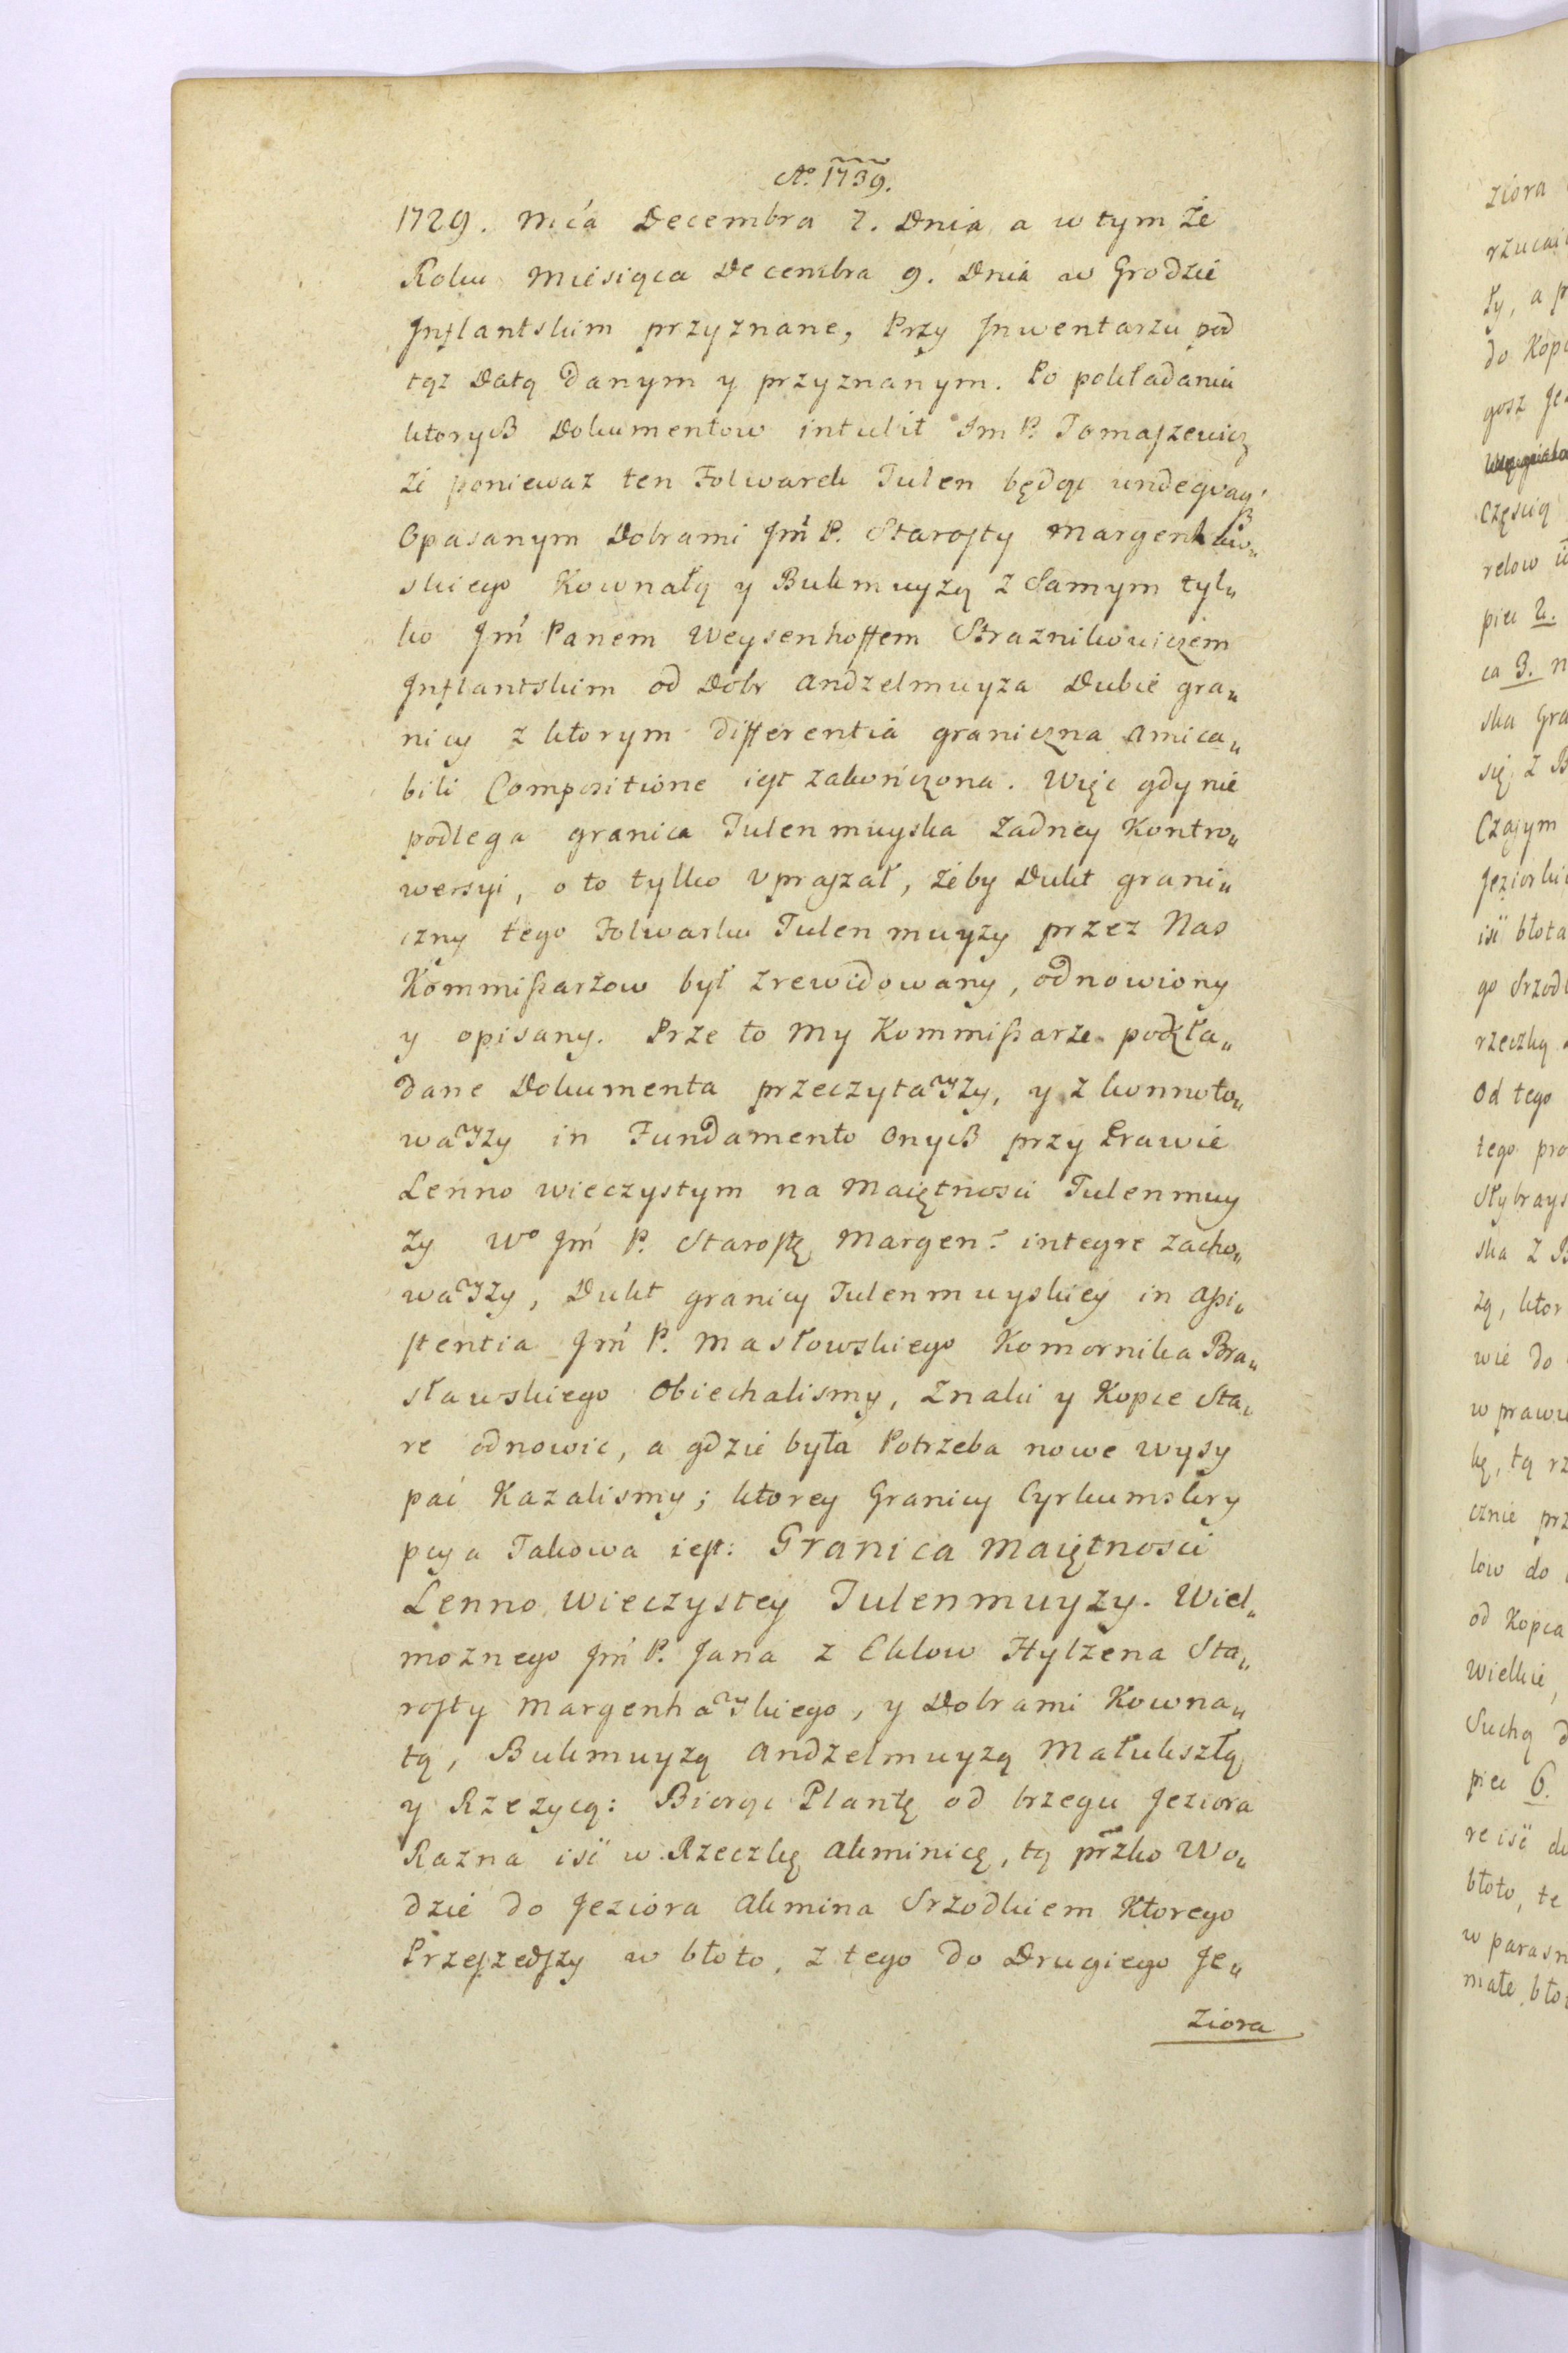 Ao. 1739.
1729. Mća Decembra 7. Dnia, a w tym że
Roku Miesiąca Decembra 9. Dnia w Grodzie
Inflantskim przyznane, Przy Inwentarzu pod
tąż Datą Danym y przyznanym. Po pokładaniu
ktorych Dokumentow intulit Im P. Tomaszewicz
że poniewaz ten Folwarek Tulen będąc undequaq'
Opasanym Dobrami Jm̃ P. Starosty Margenhaw„
skiego Kownatą y Bukmuyżą z Samym tyl„
ko Jm̃ Panem Weysenhoffem Straznikowiczem
Inflantskim od Dobr Andzelmuyza Dubie gra„
nicy z ktorym differentia graniczna amica„
bili Compositione iest zakończona. Więc gdy nie
podlega granica Tulenmuyska Żadney Kontro„
wersyi, o to tylko upraszał, żeby Dukt grani„
czny tego Folwarku Tulenmuyży przez Nas
Kommissarzow był zrewidowany, odnowiony
y opisany. Prze to My Kommissarze pokła„
dane Dokumenta przeczytawszy, y zkonnoto„
wawszy in Fundamento onych przy Prawie
Lenno wieczystym na Maiętnosci Tulenmuy
ży Wo Jm̃ P. Starostę Margen: integre zacho„
wawszy, Dukt granicy Tulenmuyskiey in assi„
stentia Jm̃ P. Masłowskiego Komornika Bra„
sławskiego Obiechalismy, Znaki y Kopce Sta„
re odnowić, a gdzie była Potrzeba nowe wysy
pać Kazalismy; ktorey Granicy Cyrkumskry
pcya Takowa iest: Granica Maiętnosci
Lenno Wieczystey Tulenmuyży. Wiel„
możnego Jm̃ P. Jana z Eklow Hylzena Sta„
rosty Margenhawskiego, y Dobrami Kowna„
tą, Bukmuyżą Andzelmuyżą Małukszłą
y Rzeżycą: Biorąc Plantę od brzegu Jeziora
Razna iść w Rzeczkę Akminicę, tą prżko Wo„
dzie do Jeziora Akmina Srzodkiem Ktorego
Przeszedszy w błoto, z tego do Drugiego Je„
ziora
ziora
ły, a
do Kop
gosz Je
Częscią
relow
piec 2.
ca 3. n
ska Gra
się z B
Czaym
iść błota
go Srzod
rzeczkę
Od tego
tego pro
ska z B
żą, ktor
wie do
w praw
kę, tą rz
cznie prz
low do
od Kopca
Wielkie,
Suchą d
piec 6.
re iść do
błoto, te
małe bło